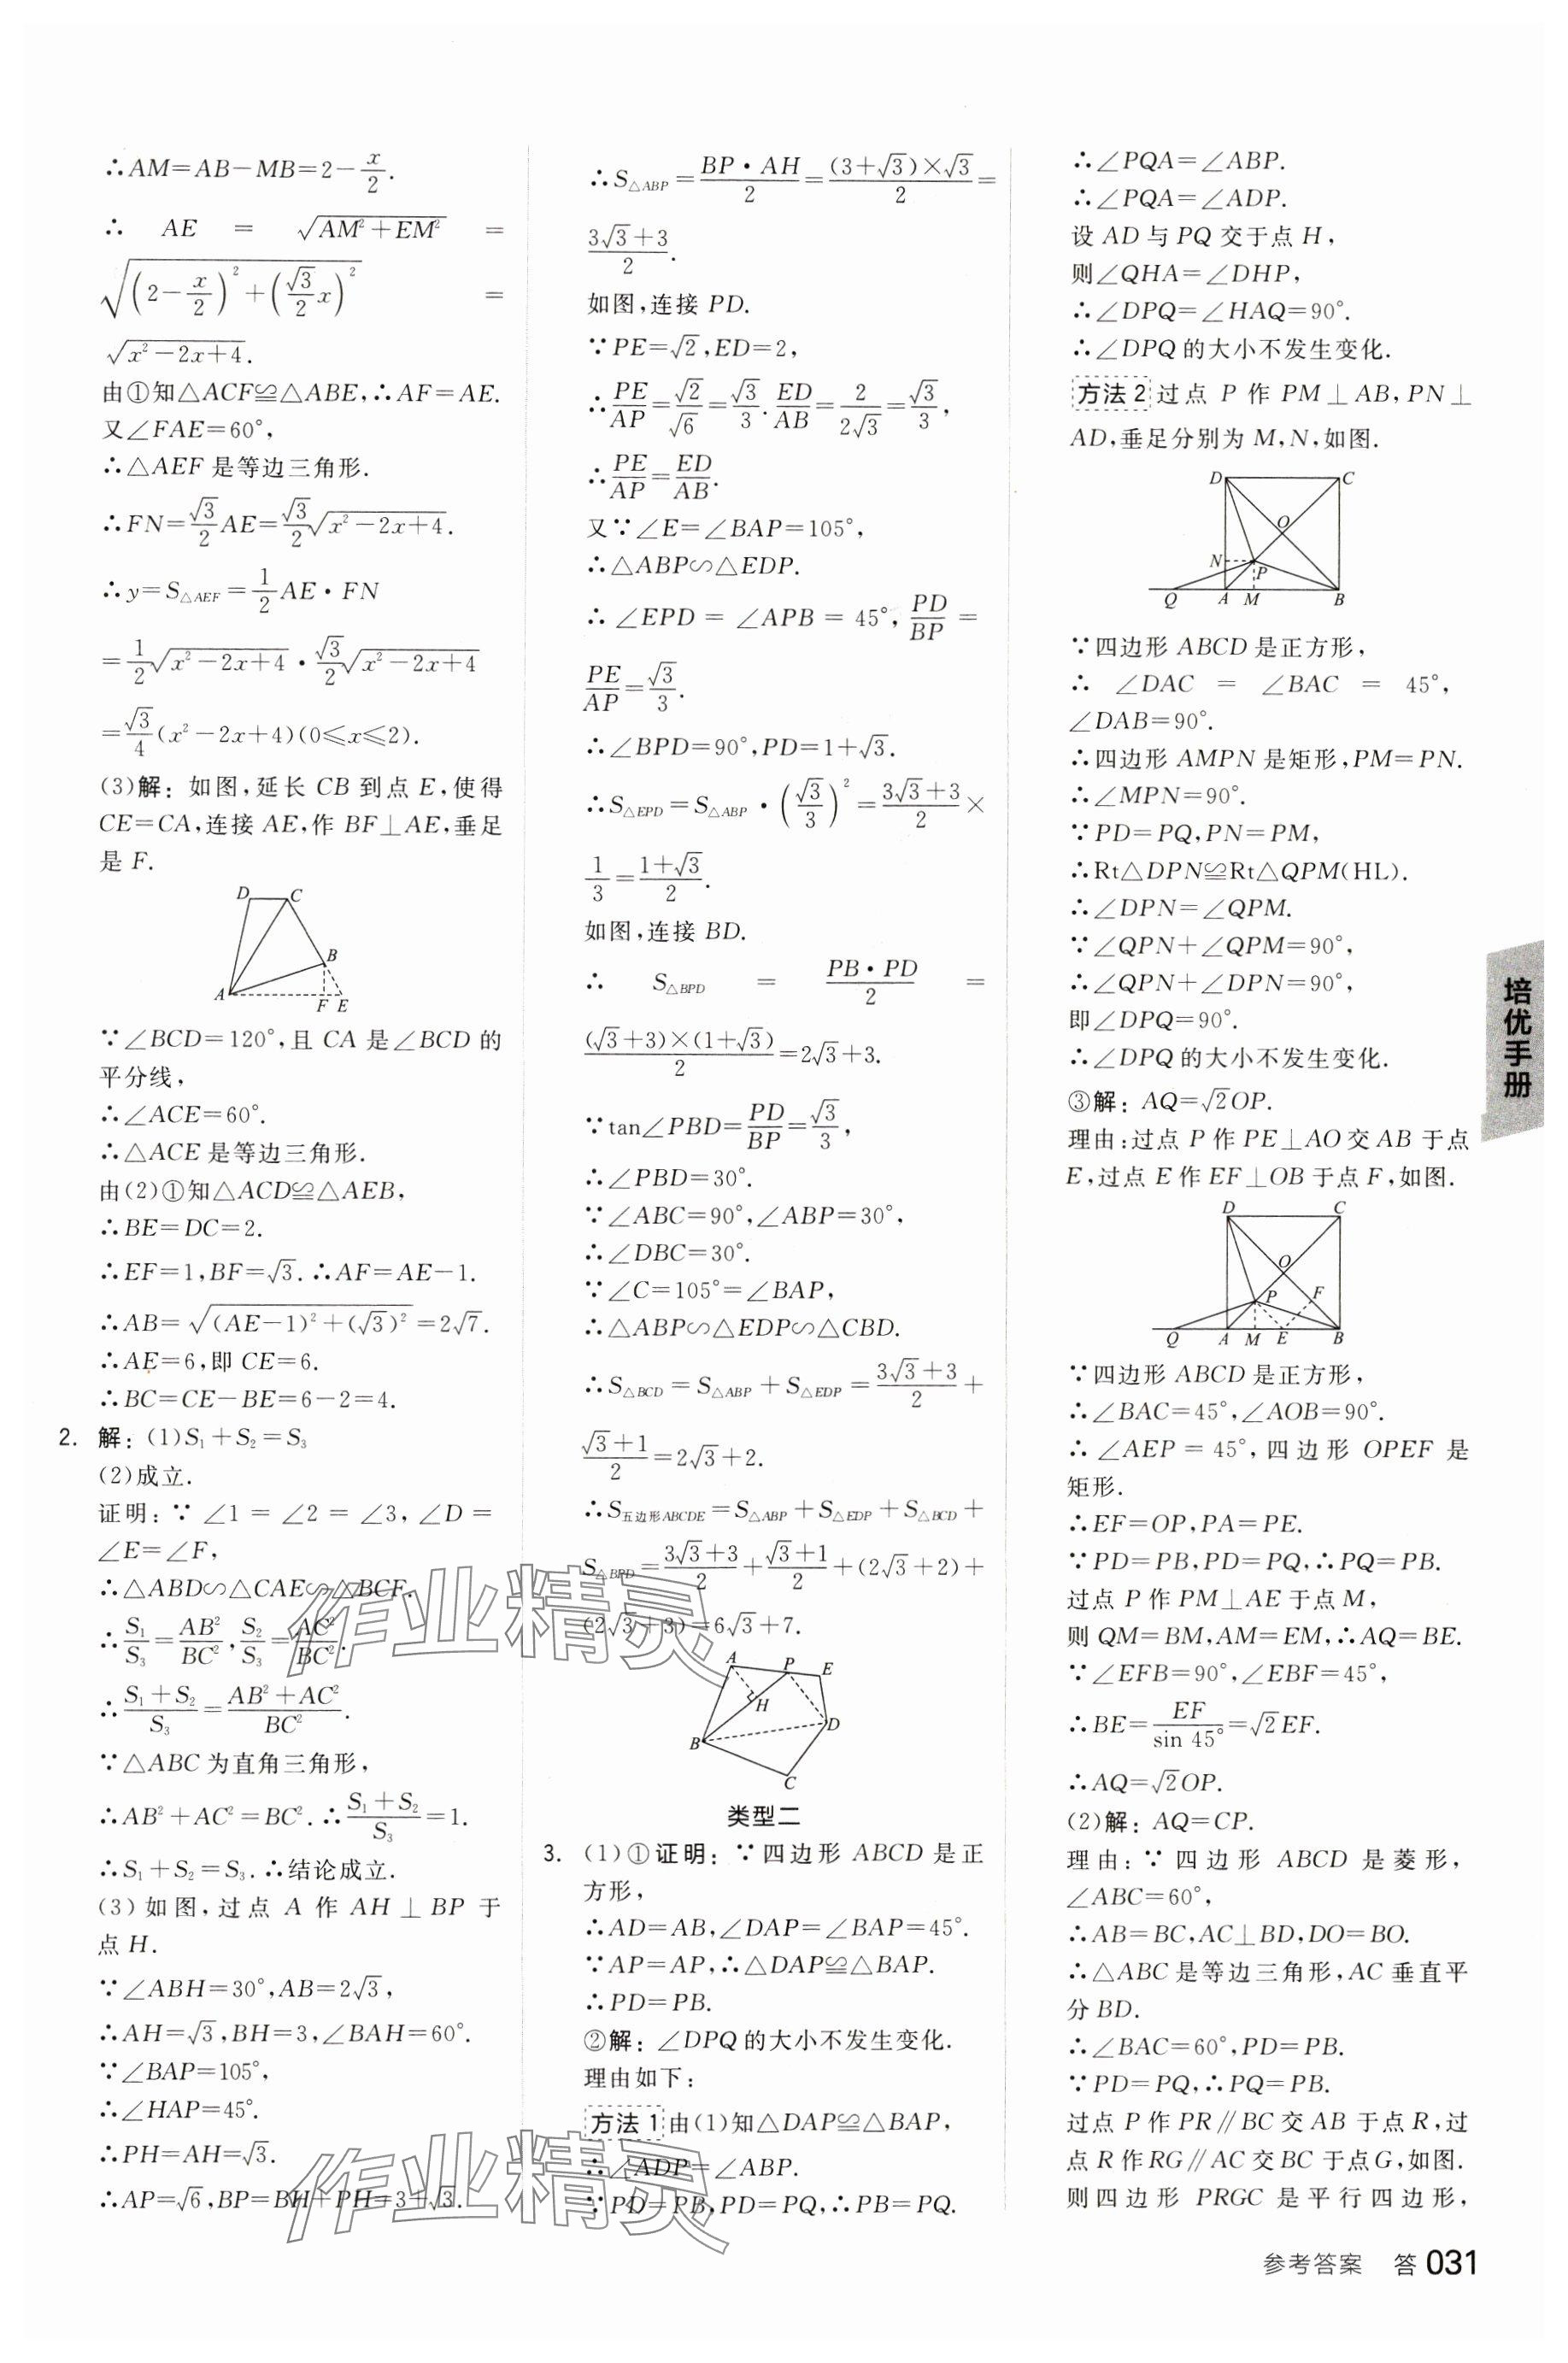 ∴AM=AB−MB=2−x/2.
∴ AE = √(AM²+EM²) =
√((2−x/2)²+(√3/2 x)²) =
√(x²−2x+4).
由①知△ACF≌△ABE,∴AF=AE.
又∠FAE=60°,
∴△AEF是等边三角形.
∴FN=√3/2 AE=√3/2 √(x²−2x+4).
∴y=S△AEF=1/2 AE·FN
=1/2 √(x²−2x+4)·√3/2 √(x²−2x+4)
=√3/4 (x²−2x+4)(0⩽x⩽2).
(3)解:如图,延长CB到点E,使得
CE=CA,连接AE,作BF⊥AE,垂足
是F.
D C
B
A F E
∵∠BCD=120°,且CA是∠BCD的
平分线,
∴∠ACE=60°.
∴△ACE是等边三角形.
由(2)①知△ACD≌△AEB,
∴BE=DC=2.
∴EF=1,BF=√3.∴AF=AE−1.
∴AB=√((AE−1)²+(√3)²)=2√7.
∴AE=6,即CE=6.
∴BC=CE−BE=6−2=4.
2. 解:(1)S₁+S₂=S₃
(2)成立.
证明:∵∠1=∠2=∠3,∠D=
∠E=∠F,
∴△ABD∽△CAE∽△BCF.
∴S₁/S₃=AB²/BC²,S₂/S₃=AC²/BC².
∴(S₁+S₂)/S₃=(AB²+AC²)/BC².
∵△ABC为直角三角形,
∴AB²+AC²=BC².∴(S₁+S₂)/S₃=1.
∴S₁+S₂=S₃.∴结论成立.
(3)如图,过点A作AH⊥BP于
点H.
∵∠ABH=30°,AB=2√3,
∴AH=√3,BH=3,∠BAH=60°.
∵∠BAP=105°,
∴∠HAP=45°.
∴PH=AH=√3.
∴AP=√6,BP=BH+PH=3+√3.
∴S△ABP=BP·AH/2=(3+√3)×√3/2=
(3√3+3)/2.
如图,连接PD.
∵PE=√2,ED=2,
∴PE/AP=√2/√6=√3/3.ED/AB=2/(2√3)=√3/3,
∴PE/AP=ED/AB.
又∵∠E=∠BAP=105°,
∴△ABP∽△EDP.
∴∠EPD=∠APB=45°,PD/BP=
PE/AP=√3/3.
∴∠BPD=90°,PD=1+√3.
∴S△EPD=S△ABP·(√3/3)²=(3√3+3)/2×
1/3=(1+√3)/2.
如图,连接BD.
∴ S△BPD = PB·PD/2 =
(√3+3)×(1+√3)/2=2√3+3.
∵tan∠PBD=PD/BP=√3/3,
∴∠PBD=30°.
∵∠ABC=90°,∠ABP=30°,
∴∠DBC=30°.
∵∠C=105°=∠BAP,
∴△ABP∽△EDP∽△CBD.
∴S△BCD=S△ABP+S△EDP=(3√3+3)/2+
(√3+1)/2=2√3+2.
∴S五边形ABCDE=S△ABP+S△EDP+S△BCD+
S△BPD=(3√3+3)/2+(√3+1)/2+(2√3+2)+
(2√3+3)=6√3+7.
A P E
H
D
B
C
类型二
3. (1)①证明:∵四边形ABCD是正
方形,
∴AD=AB,∠DAP=∠BAP=45°.
∵AP=AP,∴△DAP≌△BAP.
∴PD=PB.
②解:∠DPQ的大小不发生变化.
理由如下:
方法1 由(1)知△DAP≌△BAP,
∴∠ADP=∠ABP.
∵PD=PB,PD=PQ,∴PB=PQ.
∴∠PQA=∠ABP.
∴∠PQA=∠ADP.
设AD与PQ交于点H,
则∠QHA=∠DHP,
∴∠DPQ=∠HAQ=90°.
∴∠DPQ的大小不发生变化.
方法2 过点P作PM⊥AB,PN⊥
AD,垂足分别为M,N,如图.
D C
O
N P
Q A M B
∵四边形ABCD是正方形,
∴ ∠DAC = ∠BAC = 45°,
∠DAB=90°.
∴四边形AMPN是矩形,PM=PN.
∴∠MPN=90°.
∵PD=PQ,PN=PM,
∴Rt△DPN≌Rt△QPM(HL).
∴∠DPN=∠QPM.
∵∠QPN+∠QPM=90°,
∴∠QPN+∠DPN=90°,
即∠DPQ=90°.
∴∠DPQ的大小不发生变化.
③解:AQ=√2OP.
理由:过点P作PE⊥AO交AB于点
E,过点E作EF⊥OB于点F,如图.
D C
O
P F
Q A M E B
∵四边形ABCD是正方形,
∴∠BAC=45°,∠AOB=90°.
∴∠AEP=45°,四边形OPEF是
矩形.
∴EF=OP,PA=PE.
∵PD=PB,PD=PQ,∴PQ=PB.
过点P作PM⊥AE于点M,
则QM=BM,AM=EM,∴AQ=BE.
∵∠EFB=90°,∠EBF=45°,
∴BE=EF/sin 45°=√2EF.
∴AQ=√2OP.
(2)解:AQ=CP.
理由:∵四边形ABCD是菱形,
∠ABC=60°,
∴AB=BC,AC⊥BD,DO=BO.
∴△ABC是等边三角形,AC垂直平
分BD.
∴∠BAC=60°,PD=PB.
∵PD=PQ,∴PQ=PB.
过点P作PR∥BC交AB于点R,过
点R作RG∥AC交BC于点G,如图.
则四边形PRGC是平行四边形,
培优手册
作业精灵
作业精灵
参考答案 答031